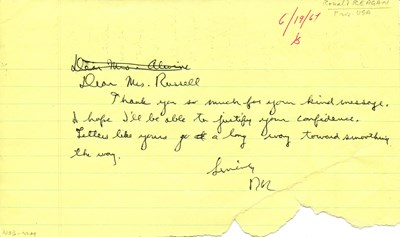 Ronald REAGAN
6/19/67
Dear Mrs. Alvine
Dear Mrs. Russell
Thank you so much for your kind message.
I hope I'll be able to justify your confidence.
Letters like yours go a long way toward smoothing
the way.
Sincerely
RR